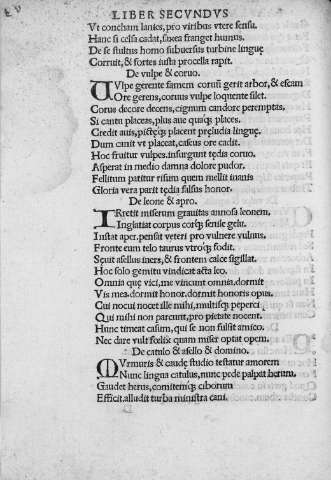 LIBER SECVNDVS
Vt concham lanies, pro viribus vtere sensu.
Hanc si celsa cadat, saxea franget humus.
De se stultus homo subuersus turbine linguę
Corruit, & fortes iusta procella rapit.
De vulpe & coruo.
VVlpe gerente famem coruū gerit arbor, & escam
Ore gerens, coruus vulpe loquente silet.
Corue decore decens, cignum candore peremptas,
Si cantu placeas, plus aue quaqȝ places.
Credit auis, pictęqȝ placent pręludia linguę.
Dum canit vt placeat, caseus ore cadit.
Hoc fruitur vulpes. insurgunt tędia coruo.
Asperat in medio damna dolore pudor.
Fellitum patitur risum quem mellit inanis
Gloria vera parit tędia falsus honor.
De leone & apro.
IRretit miserum grauitas annosa leonem,
Ingiatiat corpus corqȝ senile gelu.
Instat aper. pensat veteri pro vulnere vulnus.
Fronte eum telo taurus vtroqȝ fodit.
Sęuit asellus iners, & frontem calce sigillat.
Hoc solo gemitu vindicat acta leo.
Omnia quę vici, me vincunt omnia. dormit
Vis mea. dormit honor. dormit honoris opus.
Cui nocui nocet ille mihi, multisqȝ peperci
Qui mihi non parcunt, pro pietate nocent.
Hunc timeat casum, qui se non fulsit amico.
Nec dare vult fœlix quam miser optat opem.
De catulo & asello & domino.
MVrmuris & caudę studio testatur amorem
Nunc lingua catulus, nunc pede palpat herum.
Gaudet herus, comitemqȝ ciborum
Efficit. alludit turba ministra cani.